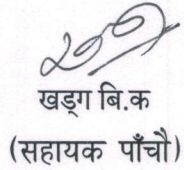 खड्ग बि.क
(सहायक पाँचौ)